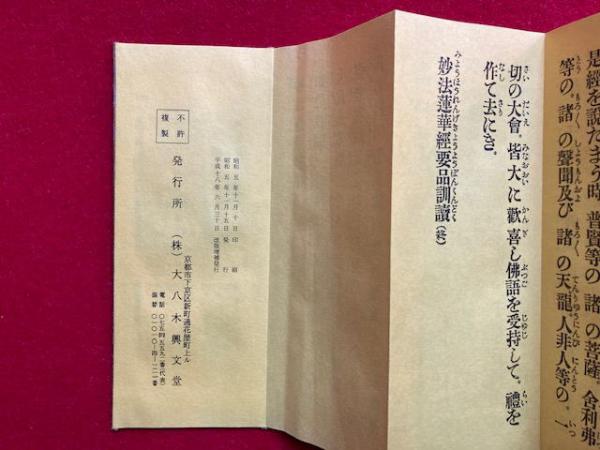 是經を説たまう時。普賢等の諸の菩薩。舍利弗
等の。諸の聲聞及び諸の天龍。人非人等の。一
切の大會。皆大に歡喜し佛語を受持して。禮を
作て去にき。
妙法蓮華經要品訓讀(終)
昭和五年十一月十日印刷
昭和五年十一月十五日発行
平成十八年六月三十日改版増補発行
不許複製
京都市下京区新町通花屋町上ル
発行所 (株)大八木興文堂